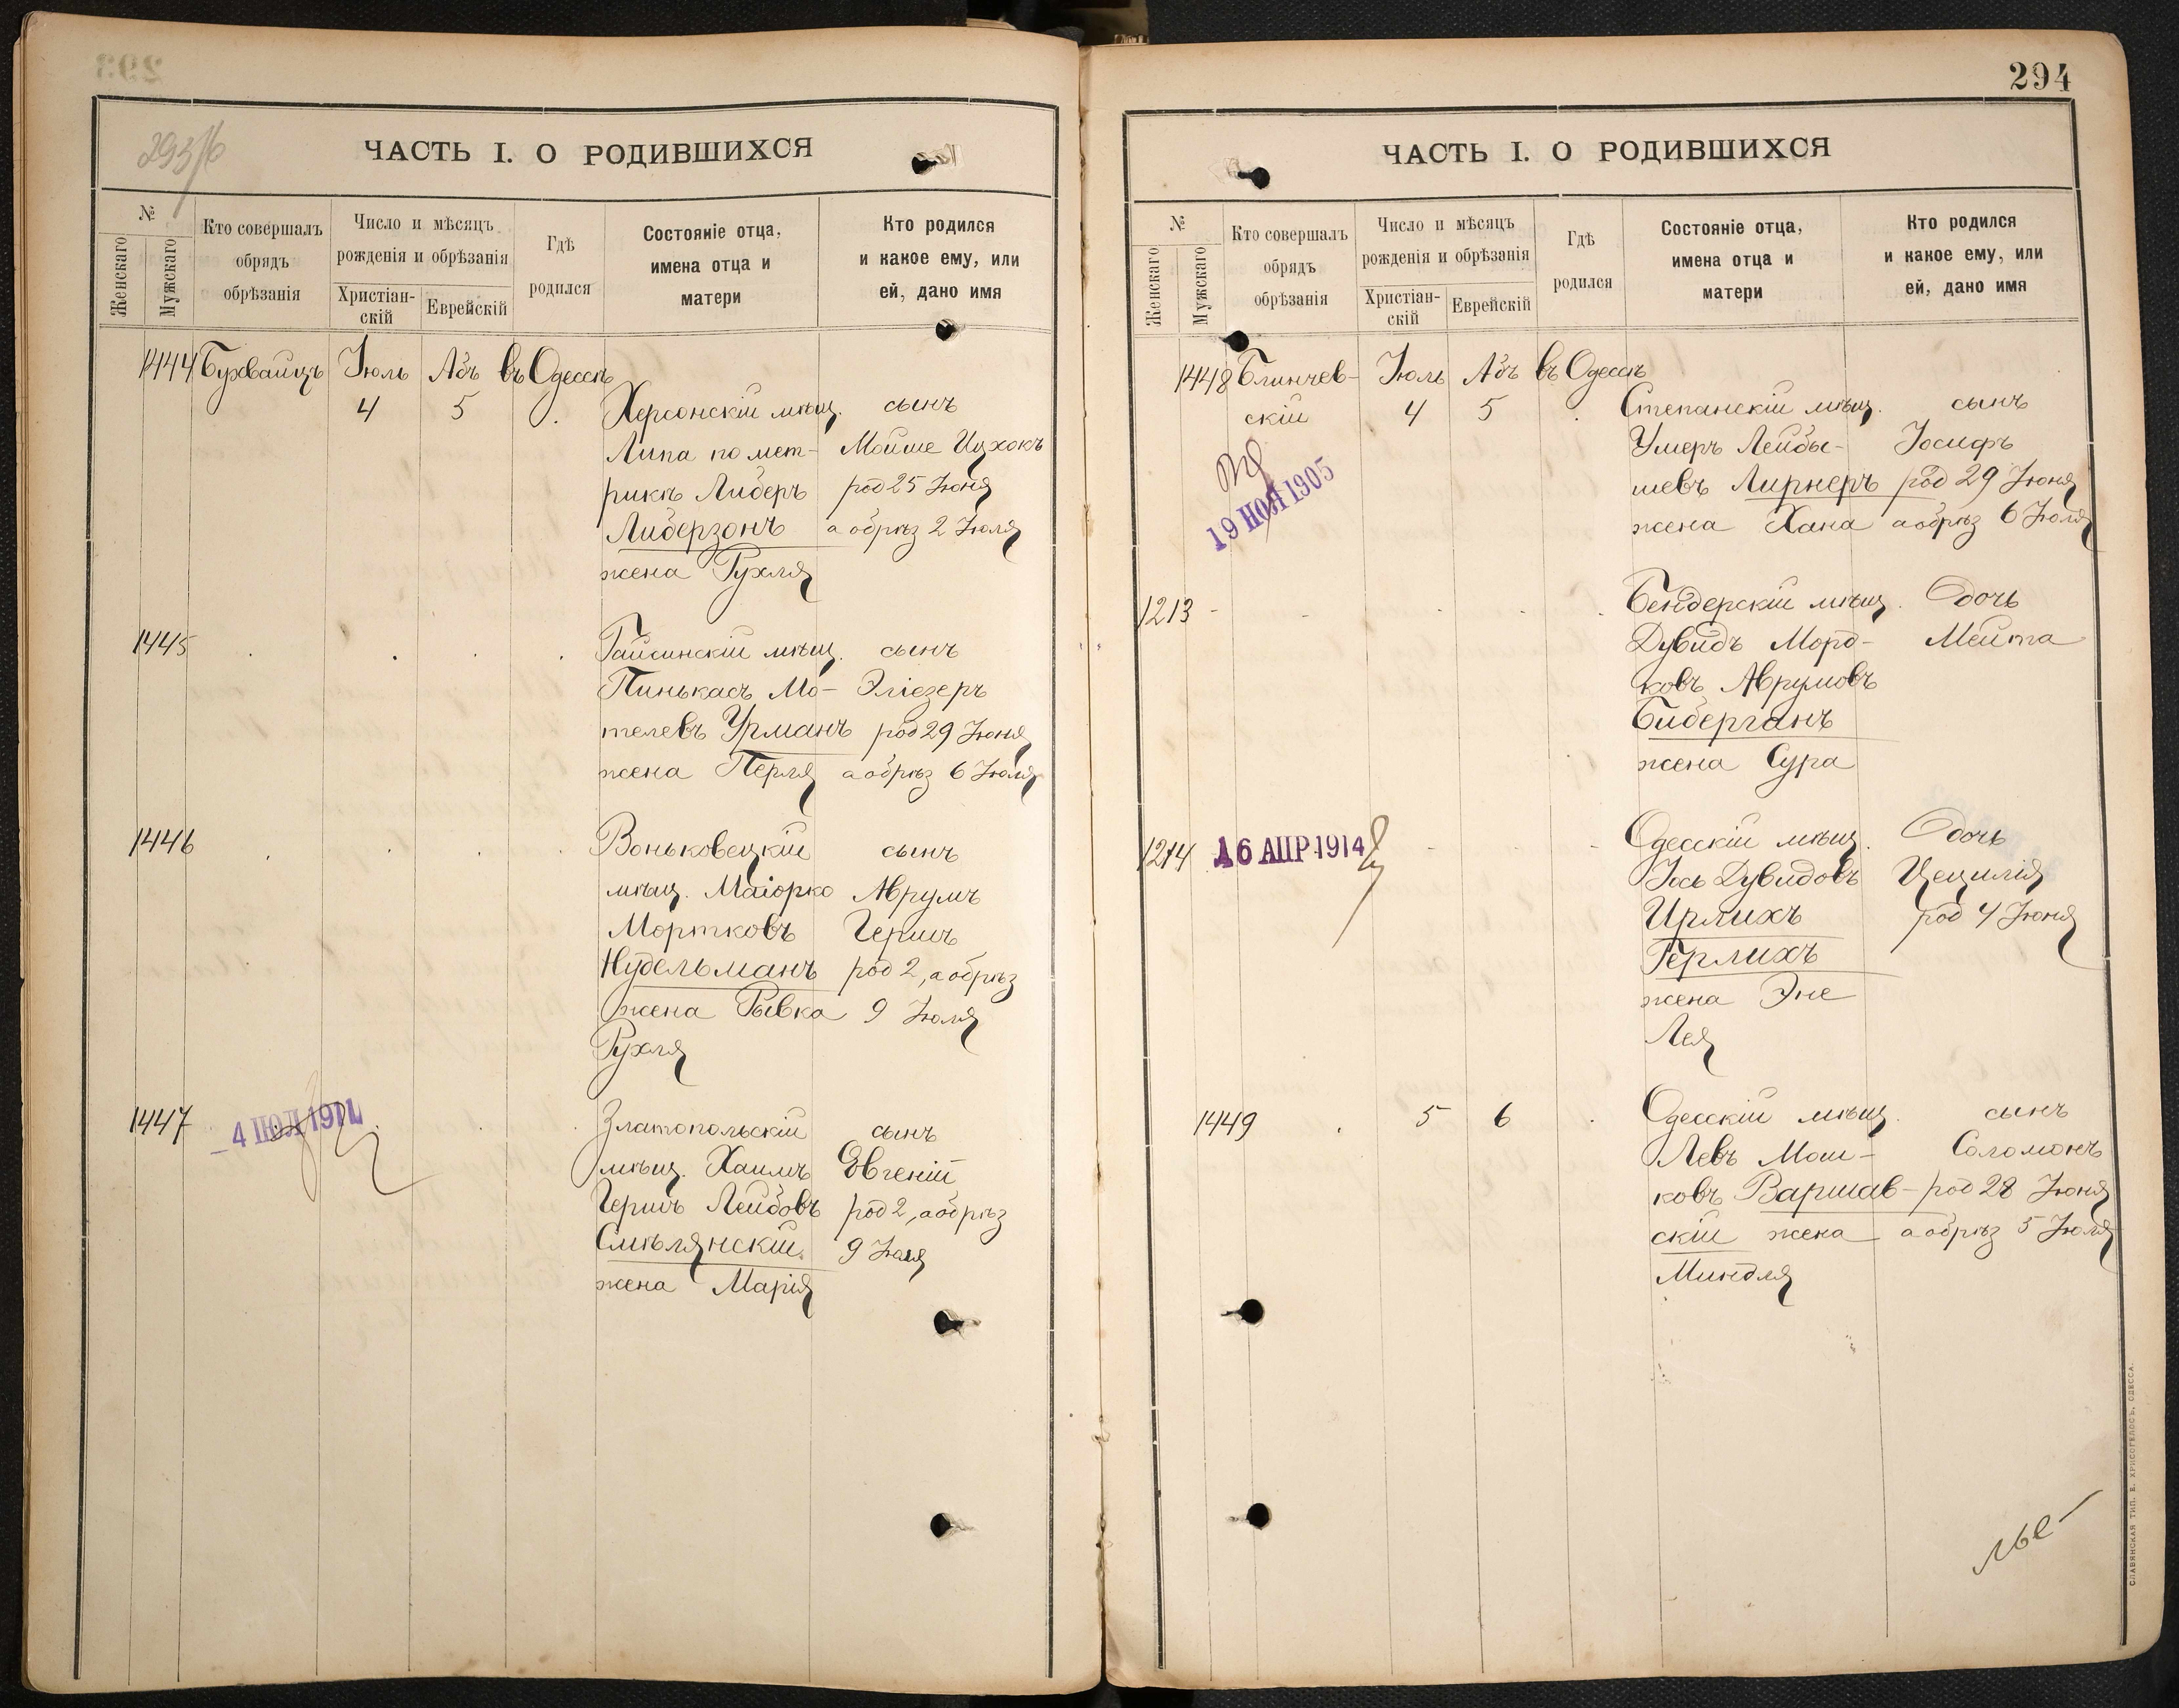 293/б
ЧАСТЬ I. О РОДИВШИХСЯ
№
Женскаго
Мужскаго
Кто совершалъ
обрядъ
обрѣзанія
Число и мѣсяцъ
рожденія и обрѣзанія
Христіан-
скій
Еврейскій
Гдѣ
родился
Состояніе отца,
имена отца и
матери
Кто родился
и какое ему, или
ей, дано имя
1444 Бухвайцъ Іюль Абъ въ Одессѣ
4 5 Херсонскій мѣщ. сынъ
Липа по мет- Мойше Ицхокъ
рикѣ Либеръ род 25 Іюня
Либерзонъ а обрѣз 2 Іюля
жена Рухля
1445 Гайсинскій мѣщ. сынъ
Пинькасъ Мо- Эліезеръ
телевъ Урманъ род 29 Іюня
жена Перля а обрѣз 6 Іюля
1446 Воньковецкій сынъ
мѣщ. Маіорко Аврумъ
Мортковъ Гершъ
Нудельманъ род 2, а обрѣз
жена Рывка 9 Іюля
Рухля
1447 4 ІЮЛ 1911 Златопольскій сынъ
мѣщ. Хаимъ Евгеній
Гершъ Лейбовъ род 2, а обрѣз
Смѣлянскій. 9 Іюля
жена Марія
294
ЧАСТЬ I. О РОДИВШИХСЯ
№
Женскаго
Мужскаго
Кто совершалъ
обрядъ
обрѣзанія
Число и мѣсяцъ
рожденія и обрѣзанія
Христіан-
скій
Еврейскій
Гдѣ
родился
Состояніе отца,
имена отца и
матери
Кто родился
и какое ему, или
ей, дано имя
1448 Блинчев- Іюль Абъ въ Одессѣ
скій 4 5 Степанскій мѣщ. сынъ
Умеръ Лейбы- Іосифъ
шевъ Лирнеръ род 29 Іюня
19 НОЯ 1905
жена Хана а обрѣз 6 Іюля
1213 Бендерскій мѣщ. дочь
Дувидъ Морд- Мейта
ковъ Аврумовъ
Биберганъ
жена Сура
1214 16 АПР 1914 Одесскій мѣщ. дочь
Іось Дувидовъ Цецилія
Ирлихъ род 4 Іюня
Герлихъ
жена Эне
Лея
1449 5 6 Одесскій мѣщ. сынъ
Левъ Мош- Соломонъ
ковъ Варшав- род 28 Іюня
скій жена а обрѣз 5 Іюля
Миндля
СЛАВЯНСКАЯ ТИП. Е. ХРИСОГЕЛОСЪ, ОДЕССА.